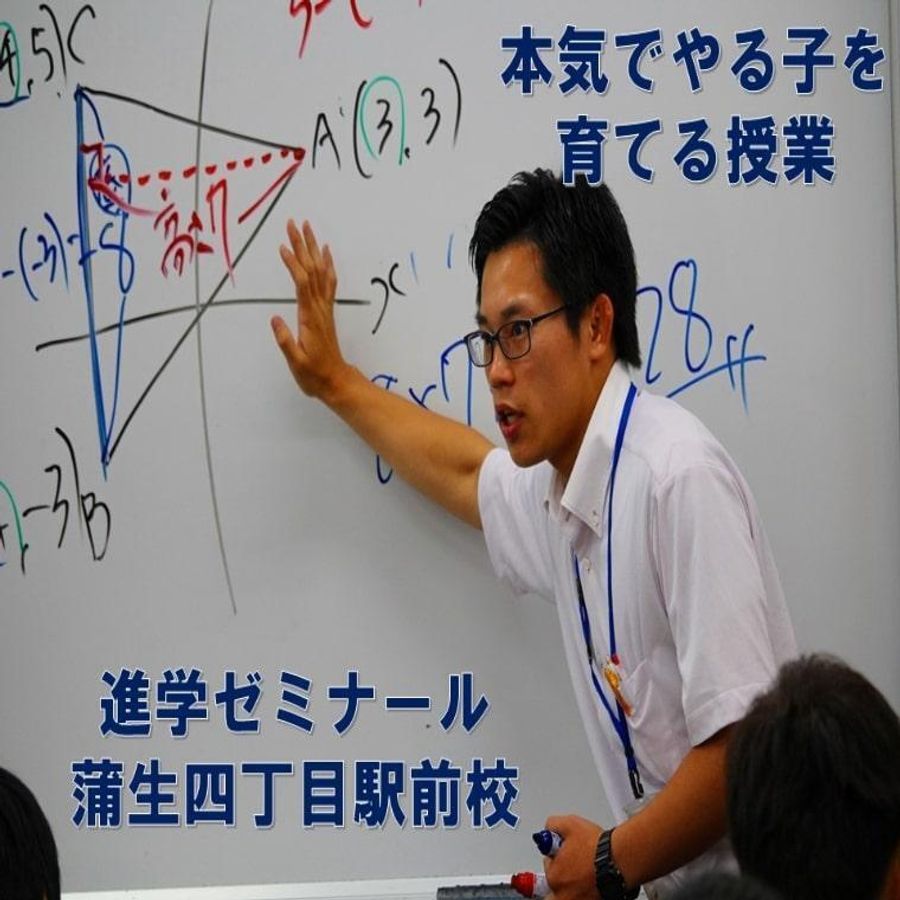 本気でやる子を
育てる授業
,5)C
A(3,3)
高さ7
-(-3)=8
x
28
,-3)B
進学ゼミナール
蒲生四丁目駅前校